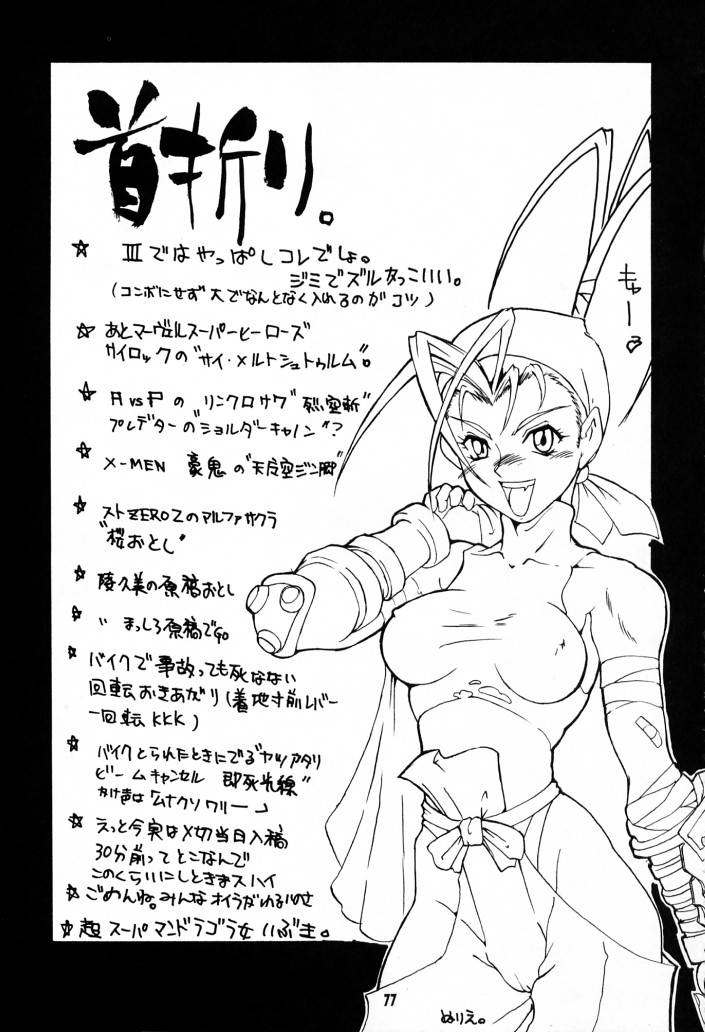 首折り。
☆ Ⅲではやっぱしコレでしょ。
ジミでズルかっこいい。
(コンボにせず大でなんとなく入れるのがコツ)
☆ あとマーヴェルスーパーヒーローズ
サイロックの"サイ・メルトシュトゥルム"。
☆ AVSPの"リンクロサワ"死ぬ空斬"
プレデターの"ショルダーキャノン"?
☆ X-MEN 豪鬼の"天魔空ジン脚"
☆ ストZERO2のマルファサクラ
"桜おとし"
☆ 陵久美の原稿おとし
☆ 〃 まっしろ原稿でGO
☆ バイクで事故っても死なない
回転おきあがり(着地寸前レバー
一回転KKK)
☆ バイクとられたときにでる"ヤツアタリ
ビームキャンセル 即死光線"
かけ声は「ムナクソワリー」
☆ えっと今実は〆切当日入稿
30分前ってとこなんで
このくらいにしときまスハイ
☆ ごめんね。みんなオイラがわるい
☆ 超スーパーマンドラゴラ女 いぶき。
キャー
77
ぬりえ。